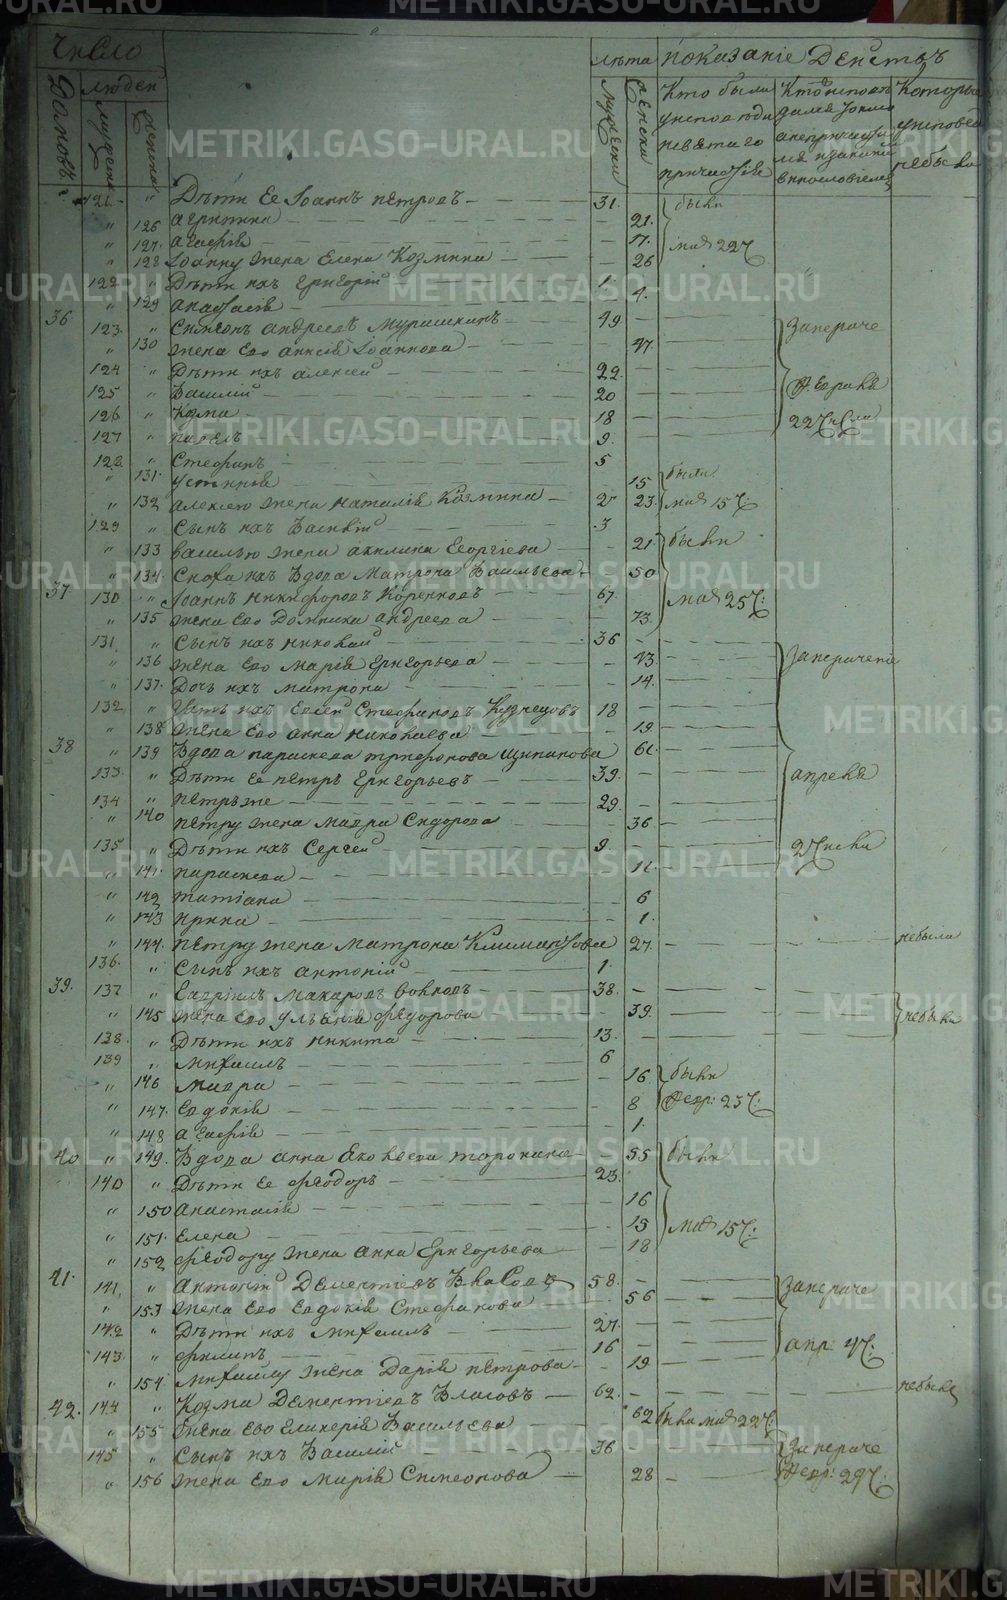 Число
лѣта показаніе Действъ
Дворовъ
людей
мужеска
женска
мужеска
женска
Кто были
у исповеди
и святаго
причастія
Кто исповѣ
дался токмо
а не причасти
лся и за какой
виною
Которые
у исповед
не были
121 " Дѣти Ее Іоаннъ петровъ 31. были
" 126 агрипина 21.
" 127. агафія 17. маія 22 Ч:
" 128 Іоанну жена Елена Козмина 26
122 " Дѣти ихъ Григорій 1.
" 129 анастасія 4.
36 123. " Симеонъ андреевъ Мурашкинъ 49 Запераче
" 130 жена Его Іоаннова 47.
124 " Дѣти ихъ алексей 22.
125 " Василій 20 Февраля
126 " Козма 18
127 " павелъ 9. 22 Числа
128. " Стефанъ 5
" 131. устинія 15 были
" 132 алексею жена наталія Козмина 23. маія 15 Ч:
129 " Сынъ ихъ Василій 3
" 133 василью жена акилина Георгіева 21. были
" 134. Сноха ихъ Вдова Матрона Васильева 50
37 130 " Іоаннъ никифоровъ Коренковъ 67. маія 25 Ч:
" 135 жена Ево Домника андреева 73.
131. " Сынъ ихъ николай 36
" 136 жена Ево Марія Григорьева 43. Заперачение
" 137. Дочь ихъ матрона 14.
132 " Зять ихъ Стефановъ Кузнецовъ 18
" 138 жена Ево анна николаева 19.
38 " 139 Вдова параскева трифонова Щипанова 61.
133. " Дѣти Ее петръ Григорьевъ 39. апреля
134 " петръ же 29.
" 140 петру жена мавра Сидорова 36.
135 " Дѣти ихъ Сергей 9. 2 Числа
" 141. параскева 11.
" 142 татіана 6
" 143 ирина 1.
" 144. петру жена матрона Климантова 27. небыла
136. " Сынъ ихъ антоній 1.
39. 137 " Гавріилъ Макаровъ Волковъ 38.
" 145 жена Ево Ульянія Федорова 39. небыли
138. " Дѣти ихъ никита 13.
139 " михаилъ 6
" 146 мавра 16 были
" 147. Евдокія 8 Февр: 23 Ч:
" 148 агафія 1.
40 " 149. Вдова анна Яковлева торопина 55 были
140 " Дѣти Ее Феодоръ 23.
" 150 анастасія 16
" 151. Елена 15 маія 15 Ч:
" 152 Феодору жена анна Григорьева 18
41. 141. " Антоній Дементіевъ Власовъ 58. Запераче
" 153 жена Ево Евдокія Стефанова 56
142 " Дѣти ихъ Михаилъ 27.
143. " Филипъ 16 апр: 4 Ч:
" 154. Михаилу жена Дарія петрова 19
42. 144 " Козма Дементіевъ Власовъ 62. небылъ
" 155 жена Ево Гликерія Васильева 62 была маія 22 Ч:
145 " Сынъ ихъ Василій 36 Запераче
" 156 жена Ево Марія Симеонова 28 Февр: 29 Ч: